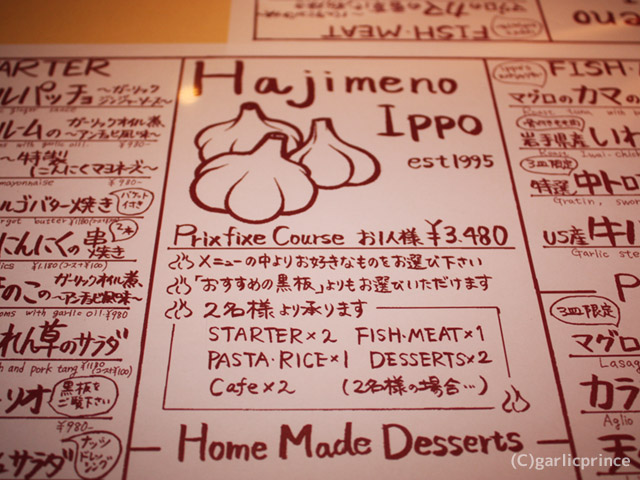 FISH・MEAT
ARTER
ルパッチョ ~ガーリック
ジンジャーソース~
ルームの ガーリックオイル煮
~アンチョビ風味~
~牛特製
(にんにくマヨネーズ~
mayonnaise ¥980-
ルゴバター焼き バケット
付き
¥1180
にんにくの串 2本
焼き
¥1180(コース+¥100)
のこの ガーリックオイル煮
~アンチョビ風味~
oms with garlic oil ¥980-
れん草のサラダ
h and pork tang ¥1180
(コース+¥100)
リオ 黒板を
ご覧下さい
¥980-
サラダ ナッツ
ドレッ
シング
Hajimeno
Ippo
est 1995
Prix fixe Course お1人様 ¥3.480
メニューの中よりお好きなものをお選び下さい
「おすすめの黒板」よりもお選びいただけます
2名様より承ります
STARTER×2 FISH・MEAT×1
PASTA・RICE×1 DESSERTS×2
Cafe×2 (2名様の場合…)
Home Made Desserts
FISH・
マグロのカマの
岩手県産 いわ
3皿限定
特選 中トロ
Gratin, sword
US産 牛ハ
Garlic ste
P
3皿限定
マグロ
Lasag
カラ
Aglio
(C)garlicprince